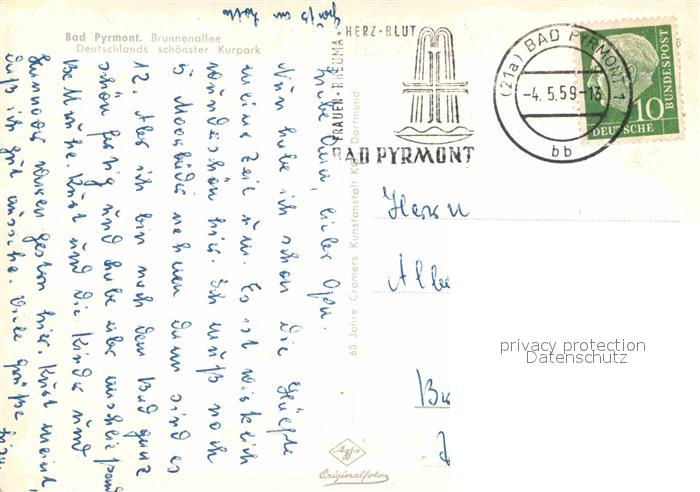 Bad Pyrmont. Brunnenallee
Deutschlands schönster Kurpark
FRAUEN · RHEUMA · HERZ · BLUT
BAD PYRMONT
(21a) BAD PYRMONT 1
-4.5.59-13
bb
10
DEUTSCHE BUNDESPOST
60 Jahre Cramers Kunstanstalt KG, Dortmund
Liebe Omi, lieber Opa.
Nun habe ich schon die Hälfte
meine Zeit um. Es ist wirklich
wunderschön hier. Ich muß noch
5 Moorbäder nehmen dann sind es
12. Aber ich bin nach dem Bad ganz
schön fertig und habe über
Kurt und die Kinder und
waren gestern hier. Kurt meint,
daß ich gut aussehe. Viele Grüße
Herrn
Albe
privacy protection
Datenschutz
Agfa
Originalfoto